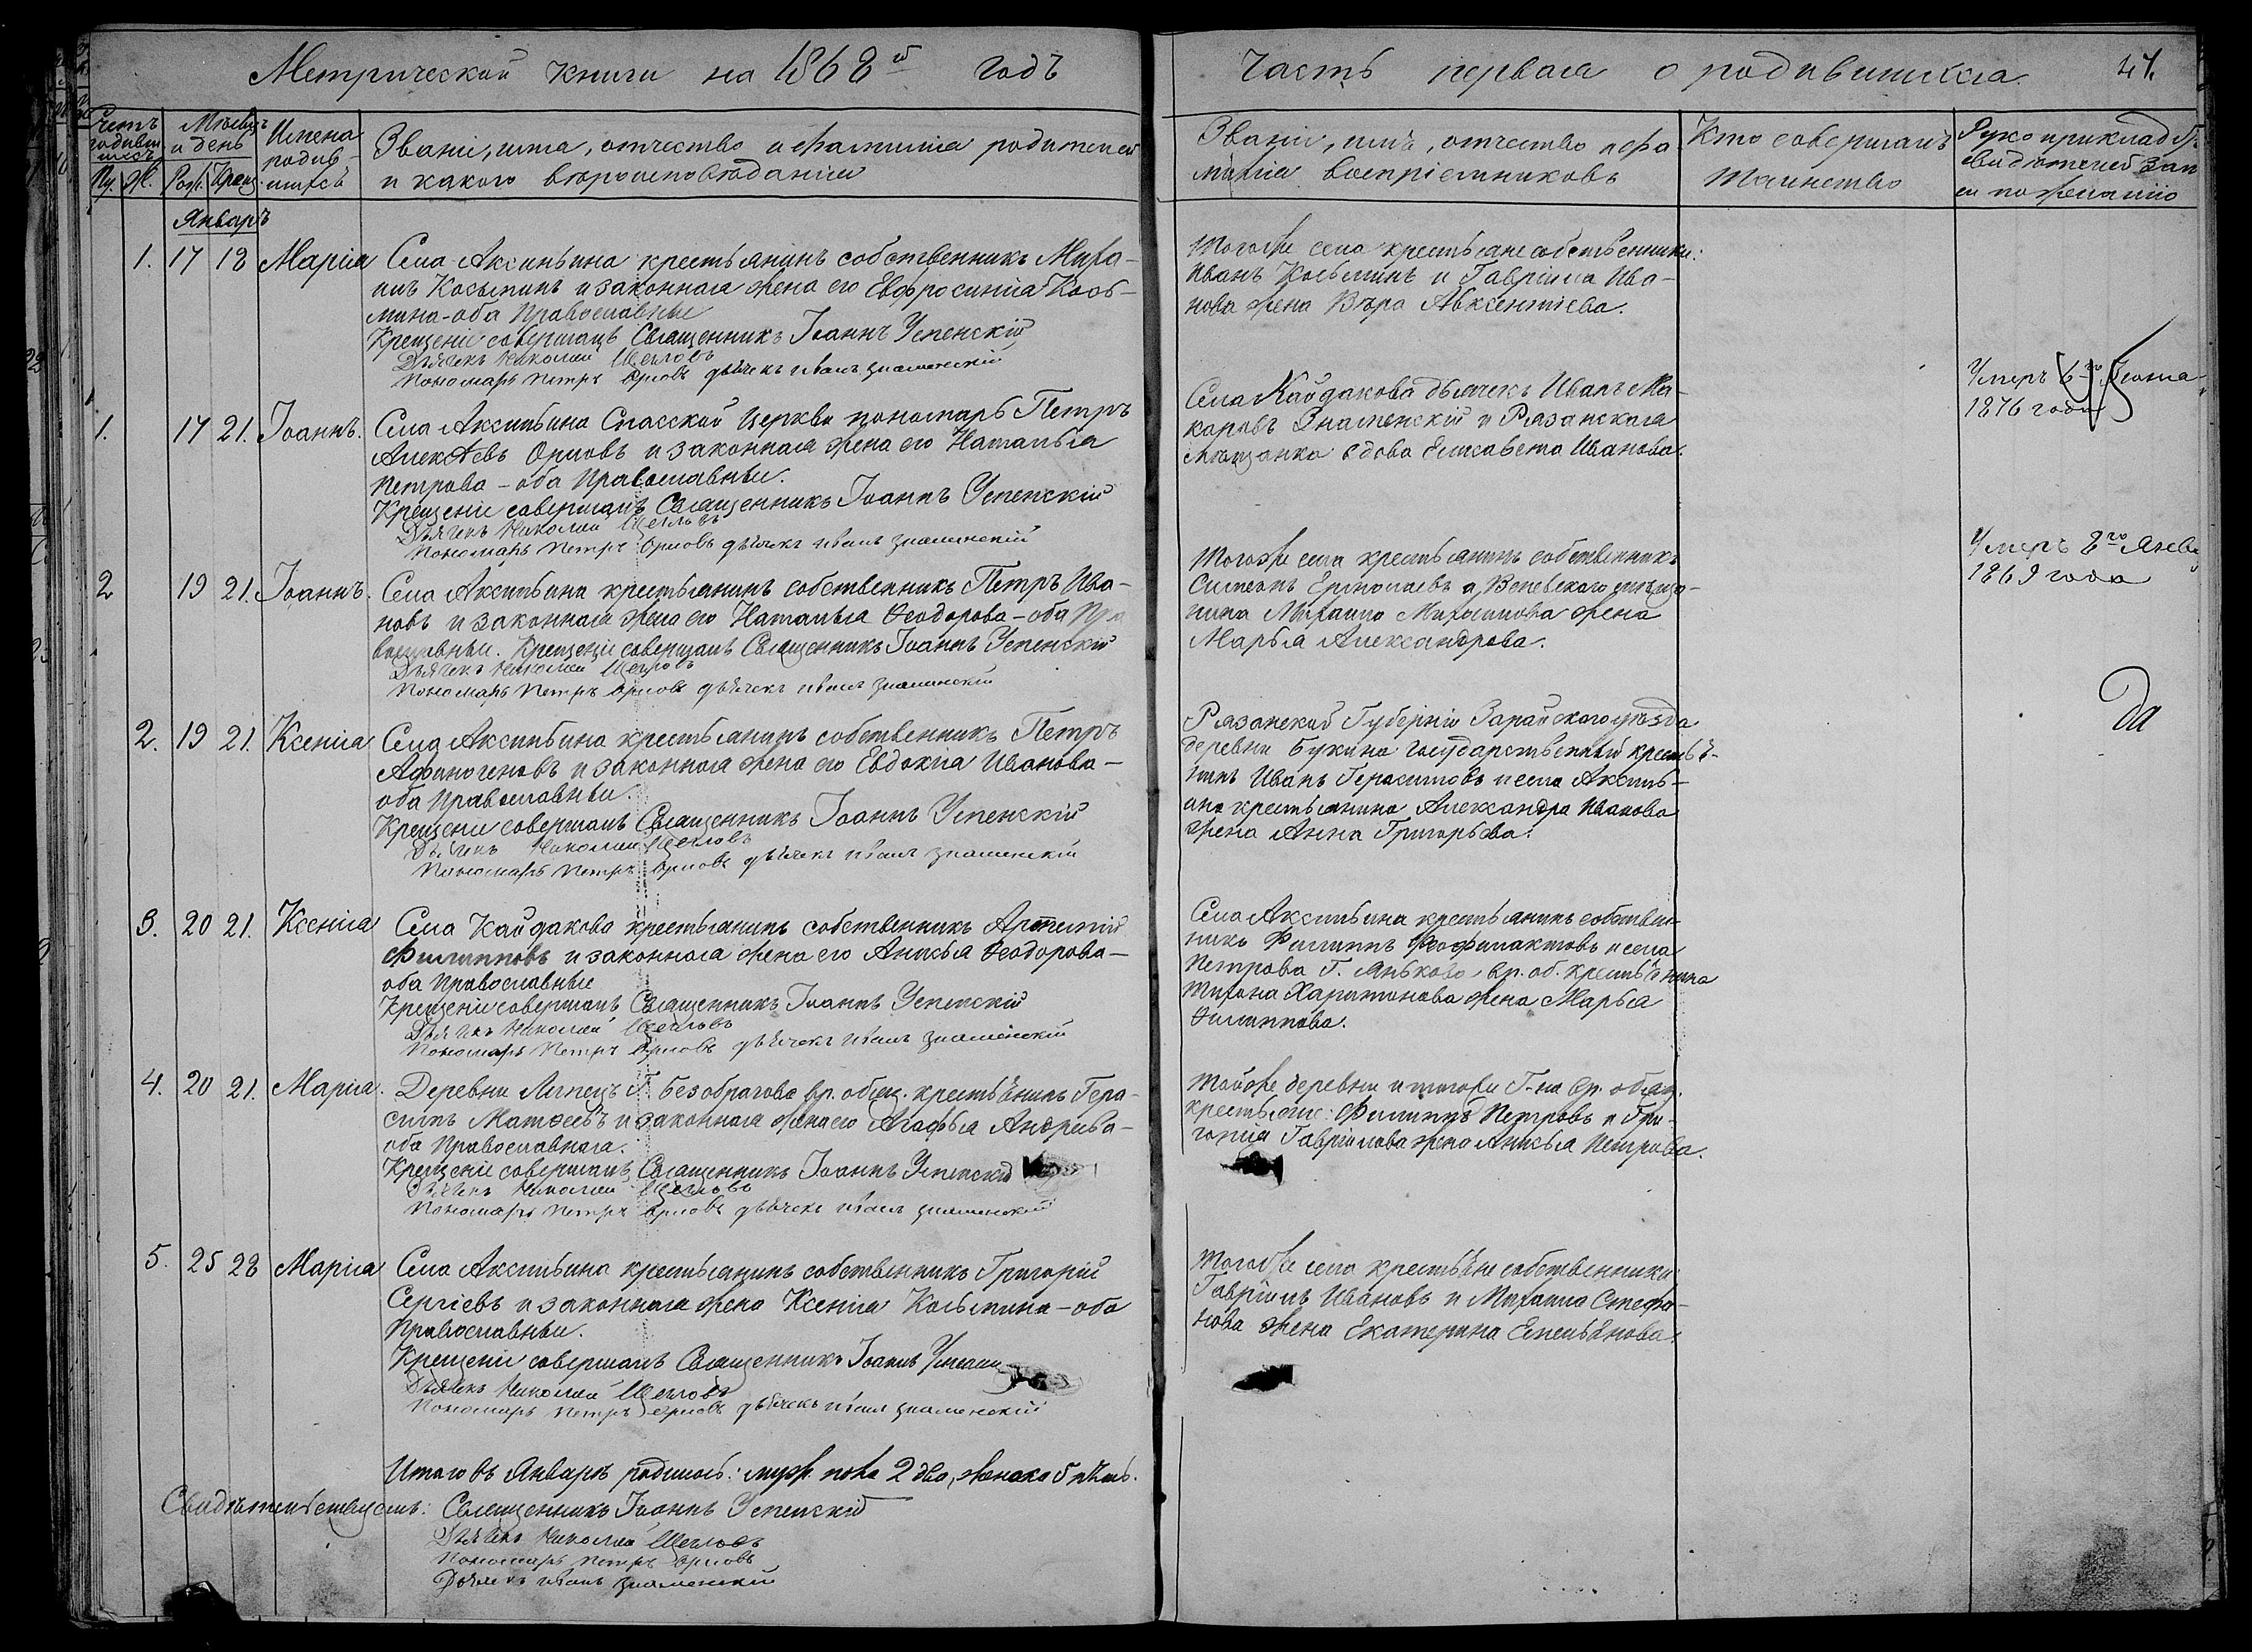 Метрической книги на 1868й годъ
Часть первая о родившихся. 41.
Счетъ родившихся
Му. Ж.
Мѣсяцъ и день
Рож. Крещ.
Имена родившихся
Званіе, имя, отчество и фамилія родителей
и какого вѣроисповѣданія
Званіе, имя, отчество и фа
милія воспріемниковъ
Кто совершалъ
таинство
Рукоприкладст.
свидѣтелей зап
си по желанію
Январь
1. 17 18 Марія
Села Аксиньина крестьянинъ собственникъ Миха-
илъ Косьминъ и законная жена его Евфросинія Кось-
мина - оба Православные
Крещеніе совершалъ Священникъ Іоаннъ Успенскій
Дьячекъ Николай Щегловъ
Пономарь Петръ Орловъ дьячекъ Иванъ Знаменскій
Тогоже села крестьяне собственники:
Иванъ Косьминъ и Гавріила Ива-
нова жена Вѣра Авксентіева.
1. 17 21. Іоаннъ.
Села Аксиньина Спасской Церкви пономарь Петръ
Алексѣевъ Орловъ и законная жена его Наталья
Петрова - оба Православные.
Крещеніе совершалъ Священникъ Іоаннъ Успенскій
Дьячекъ Николай Щегловъ
Пономарь Петръ Орловъ дьячекъ Иванъ Знаменскій
Села Кайдакова дьячекъ Иванъ Ма-
каровъ Знаменскій и Рязанская
мѣщанка вдова Елисавета Иванова.
Умеръ 6го
1876 года
2 19 21. Іоаннъ.
Села Аксиньина крестьянинъ собственникъ Петръ Ива-
новъ и законная жена его Наталья Ѳеодорова - оба Пра
вославные. Крещеніе совершалъ Священникъ Іоаннъ Успенскій
Дьячекъ Николай Щегловъ
Пономарь Петръ Орловъ дьячекъ Иванъ Знаменскій
Тогоже села крестьянинъ собственникъ
Симеонъ Ермолаевъ и Веневскаго мѣща-
нина Михаила Михайлова жена
Марья Александрова.
Умеръ 2го Янв.
1869 года
2. 19 21. Ксенія
Села Аксиньина крестьянинъ собственникъ Петръ
Афиногеновъ и законная жена его Евдокія Иванова -
оба Православные.
Крещеніе совершалъ Священникъ Іоаннъ Успенскій
Дьячекъ Николай Щегловъ
Пономарь Петръ Орловъ дьячекъ Иванъ Знаменскій
Рязанской Губерніи Зарайскаго уѣзда
деревни Букина Государственный крестья-
нинъ Иванъ Герасимовъ и села Аксинь-
ина крестьянина Александра Иванова
жена Анна Григорьева.
Да
3. 20 21. Ксенія
Села Кайдакова крестьянинъ собственникъ Артемій
Филипповъ и законная жена его Анисья Ѳеодорова -
оба Православные
Крещеніе совершалъ Священникъ Іоаннъ Успенскій
Дьячекъ Николай Щегловъ
Пономарь Петръ Орловъ дьячекъ Иванъ Знаменскій
Села Аксиньина крестьянинъ собствен-
никъ Филиппъ Ѳеофилактовъ и села
Петрова Г. Янькова вр. об. крестьянина
Тихона Харитонова жена Марья
Филиппова.
4. 20 21. Марія.
Деревни Г. Безобразова вр. обяз. крестьянинъ Гера-
симъ Матѳеевъ и законная жена его Агафья Андреева -
оба Православная.
Крещеніе совершалъ Священникъ Іоаннъ Успенскій
Дьячекъ Николай Щегловъ
Пономарь Петръ Орловъ дьячекъ Иванъ Знаменскій
Тойже деревни и тогоже Г-на вр. обяз.
крестьяне: Филиппъ Петровъ и Гри-
горія Гавріилова жена Анисья Петрова.
5. 25 28 Марія
Села Аксиньина крестьянинъ собственникъ Григорій
Сергіевъ и законная жена Ксенія Косьмина - оба
Православные.
Крещеніе совершалъ Священникъ Іоаннъ Успенскій
Дьячекъ Николай Щегловъ
Пономарь Петръ Орловъ дьячекъ Иванъ Знаменскій
Тогоже села крестьяне собственники:
Гавріилъ Ивановъ и Михаила Стефа-
нова жена Екатерина Емельянова.
Итого въ Январѣ родилось: муж. пола 2 два, женска 5 пять.
Свидѣтельствуемъ: Священникъ Іоаннъ Успенскій
Дьячекъ Николай Щегловъ
Пономарь Петръ Орловъ
Дьячекъ Иванъ Знаменскій